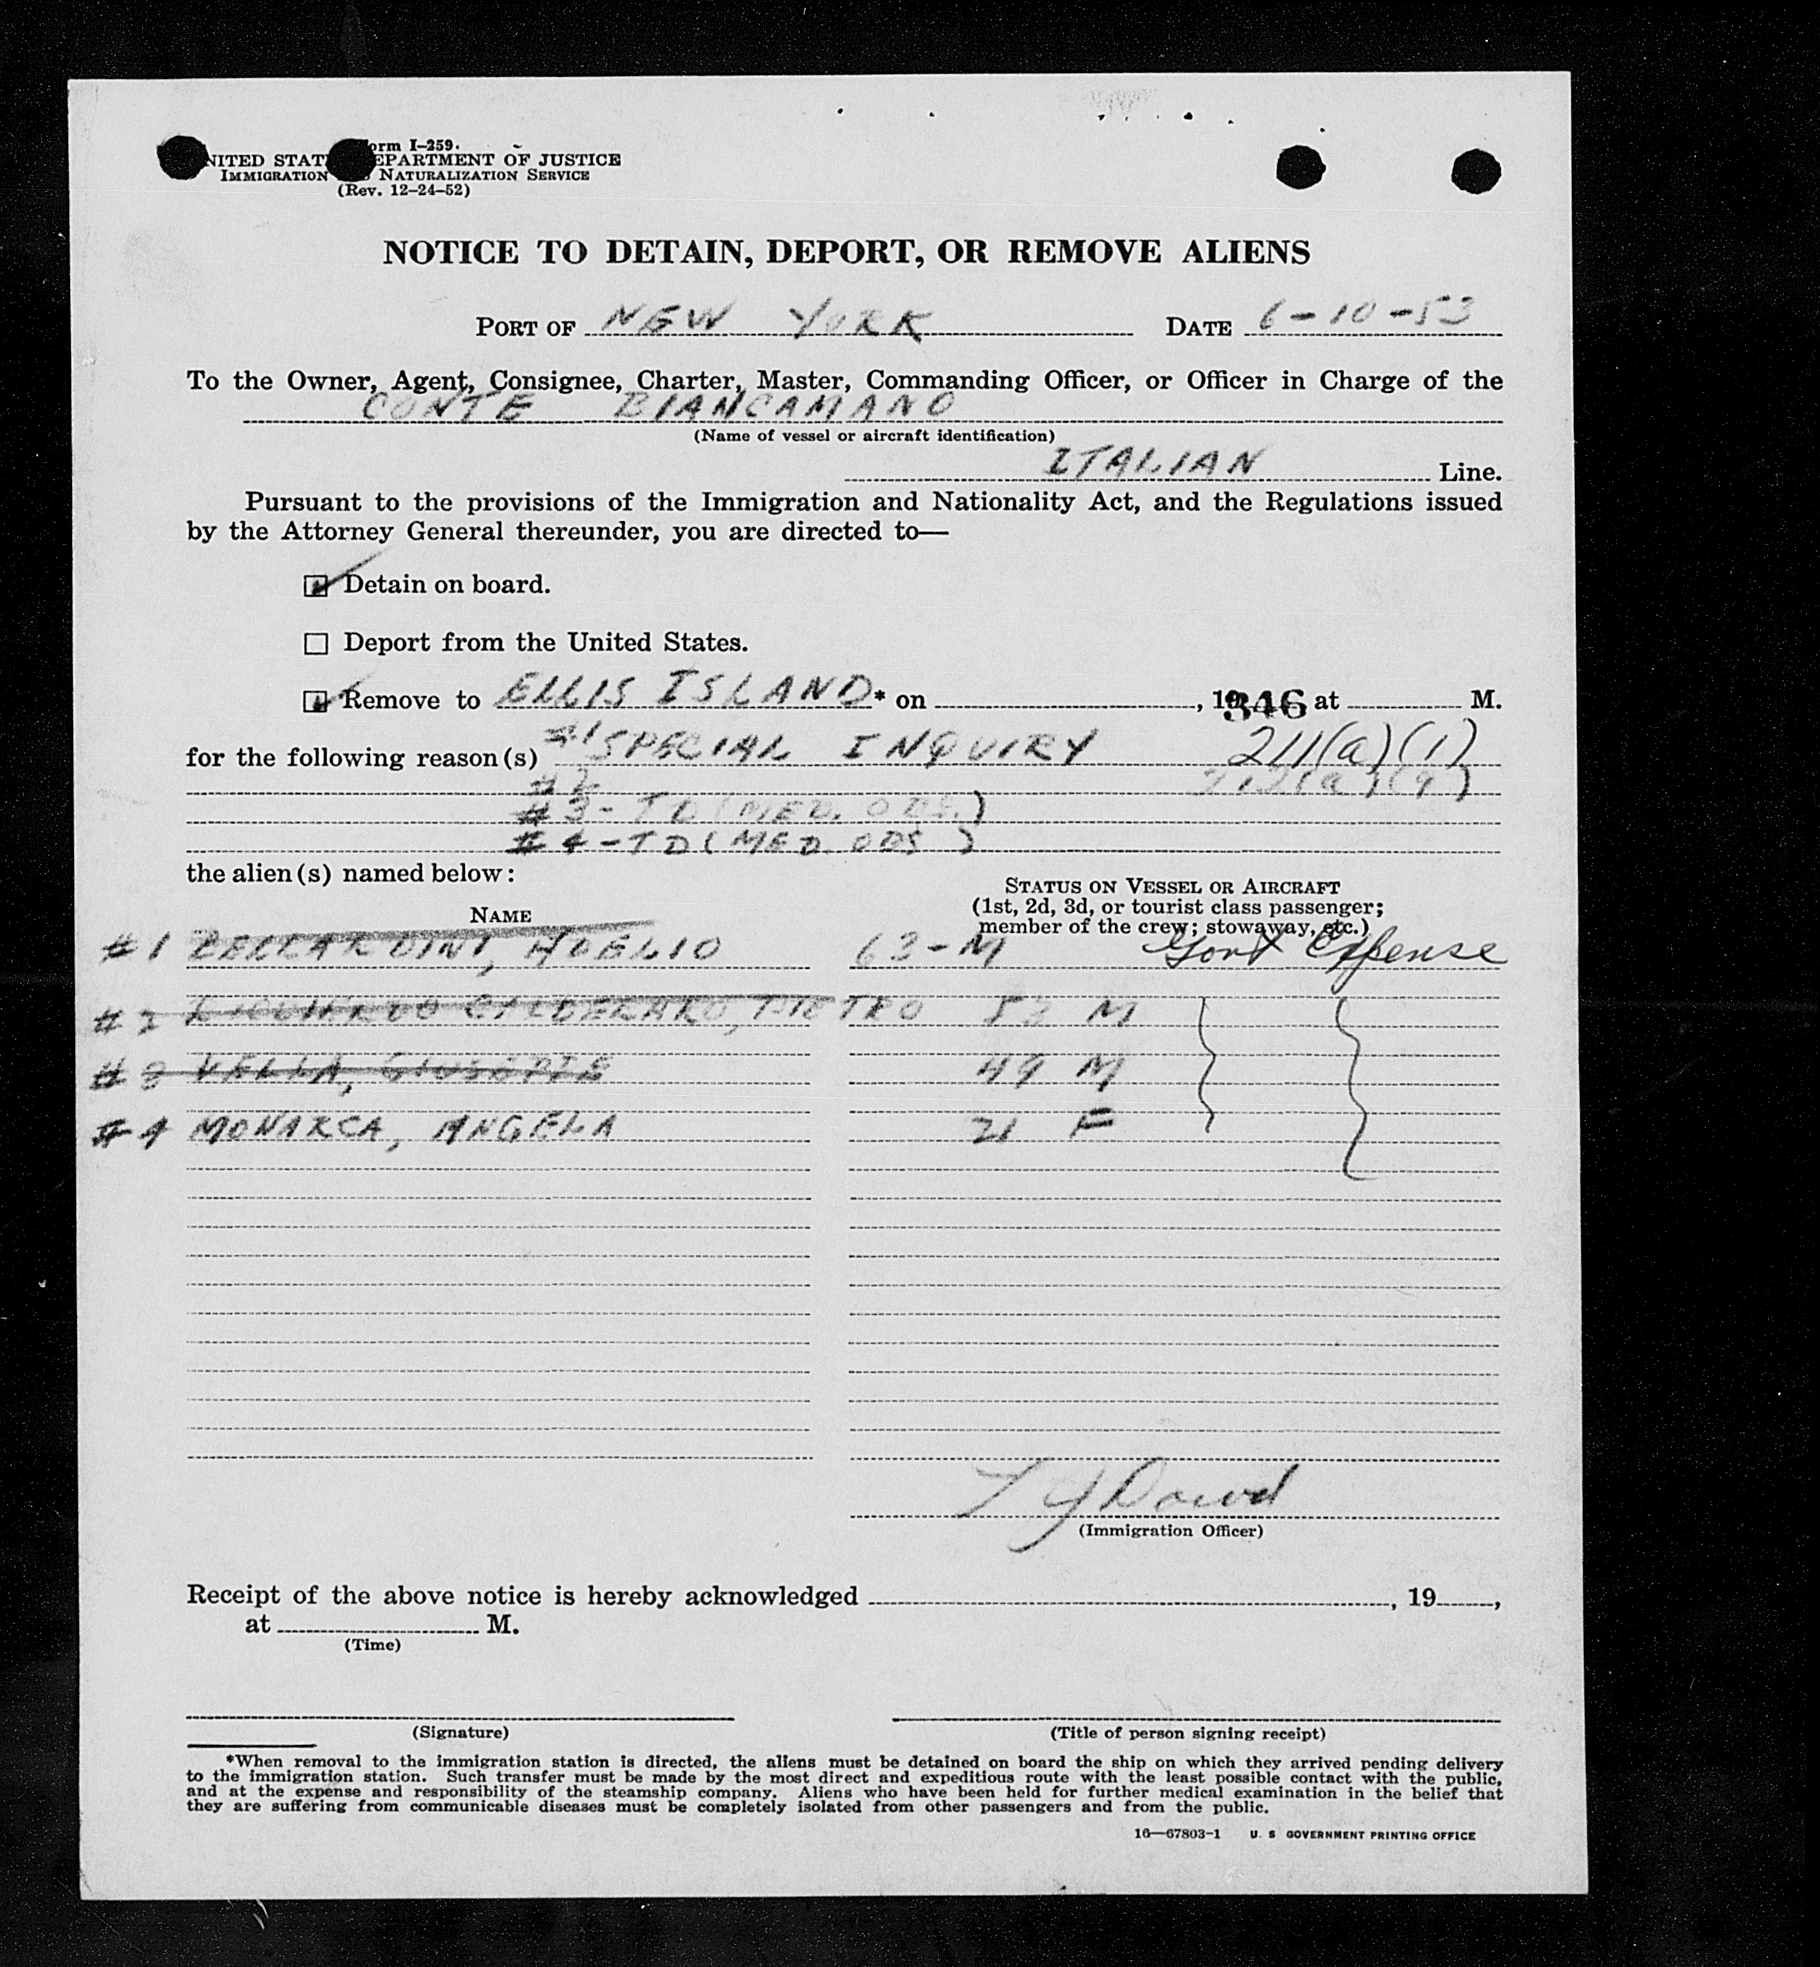 Form I-259
UNITED STATES DEPARTMENT OF JUSTICE
IMMIGRATION AND NATURALIZATION SERVICE
(Rev. 12-24-52)
NOTICE TO DETAIN, DEPORT, OR REMOVE ALIENS
PORT OF NEW YORK DATE 6-10-53
To the Owner, Agent, Consignee, Charter, Master, Commanding Officer, or Officer in Charge of the
CONTE BIANCAMANO
(Name of vessel or aircraft identification)
ITALIAN Line.
Pursuant to the provisions of the Immigration and Nationality Act, and the Regulations issued
by the Attorney General thereunder, you are directed to—
Detain on board.
Deport from the United States.
Remove to ELLIS ISLAND * on , 19 346 at M.
for the following reason(s) #1 SPECIAL INQUIRY 211(a)(1)
#2 212(a)(9)
#3-TD (MED. OBS.)
#4-TD (MED. OBS)
the alien(s) named below:
STATUS ON VESSEL OR AIRCRAFT
(1st, 2d, 3d, or tourist class passenger;
member of the crew; stowaway, etc.)
NAME
#1 ADELIO 63-M Govt Expense
#2 CALDERARO, PIETRO 53 M
#3 VELLA, GIUSEPPE 49 M
#4 MONARCA, ANGELA 21 F
Dowd
(Immigration Officer)
Receipt of the above notice is hereby acknowledged , 19 ,
at M.
(Time)
(Signature) (Title of person signing receipt)
*When removal to the immigration station is directed, the aliens must be detained on board the ship on which they arrived pending delivery
to the immigration station. Such transfer must be made by the most direct and expeditious route with the least possible contact with the public,
and at the expense and responsibility of the steamship company. Aliens who have been held for further medical examination in the belief that
they are suffering from communicable diseases must be completely isolated from other passengers and from the public.
16—67803-1 U. S GOVERNMENT PRINTING OFFICE